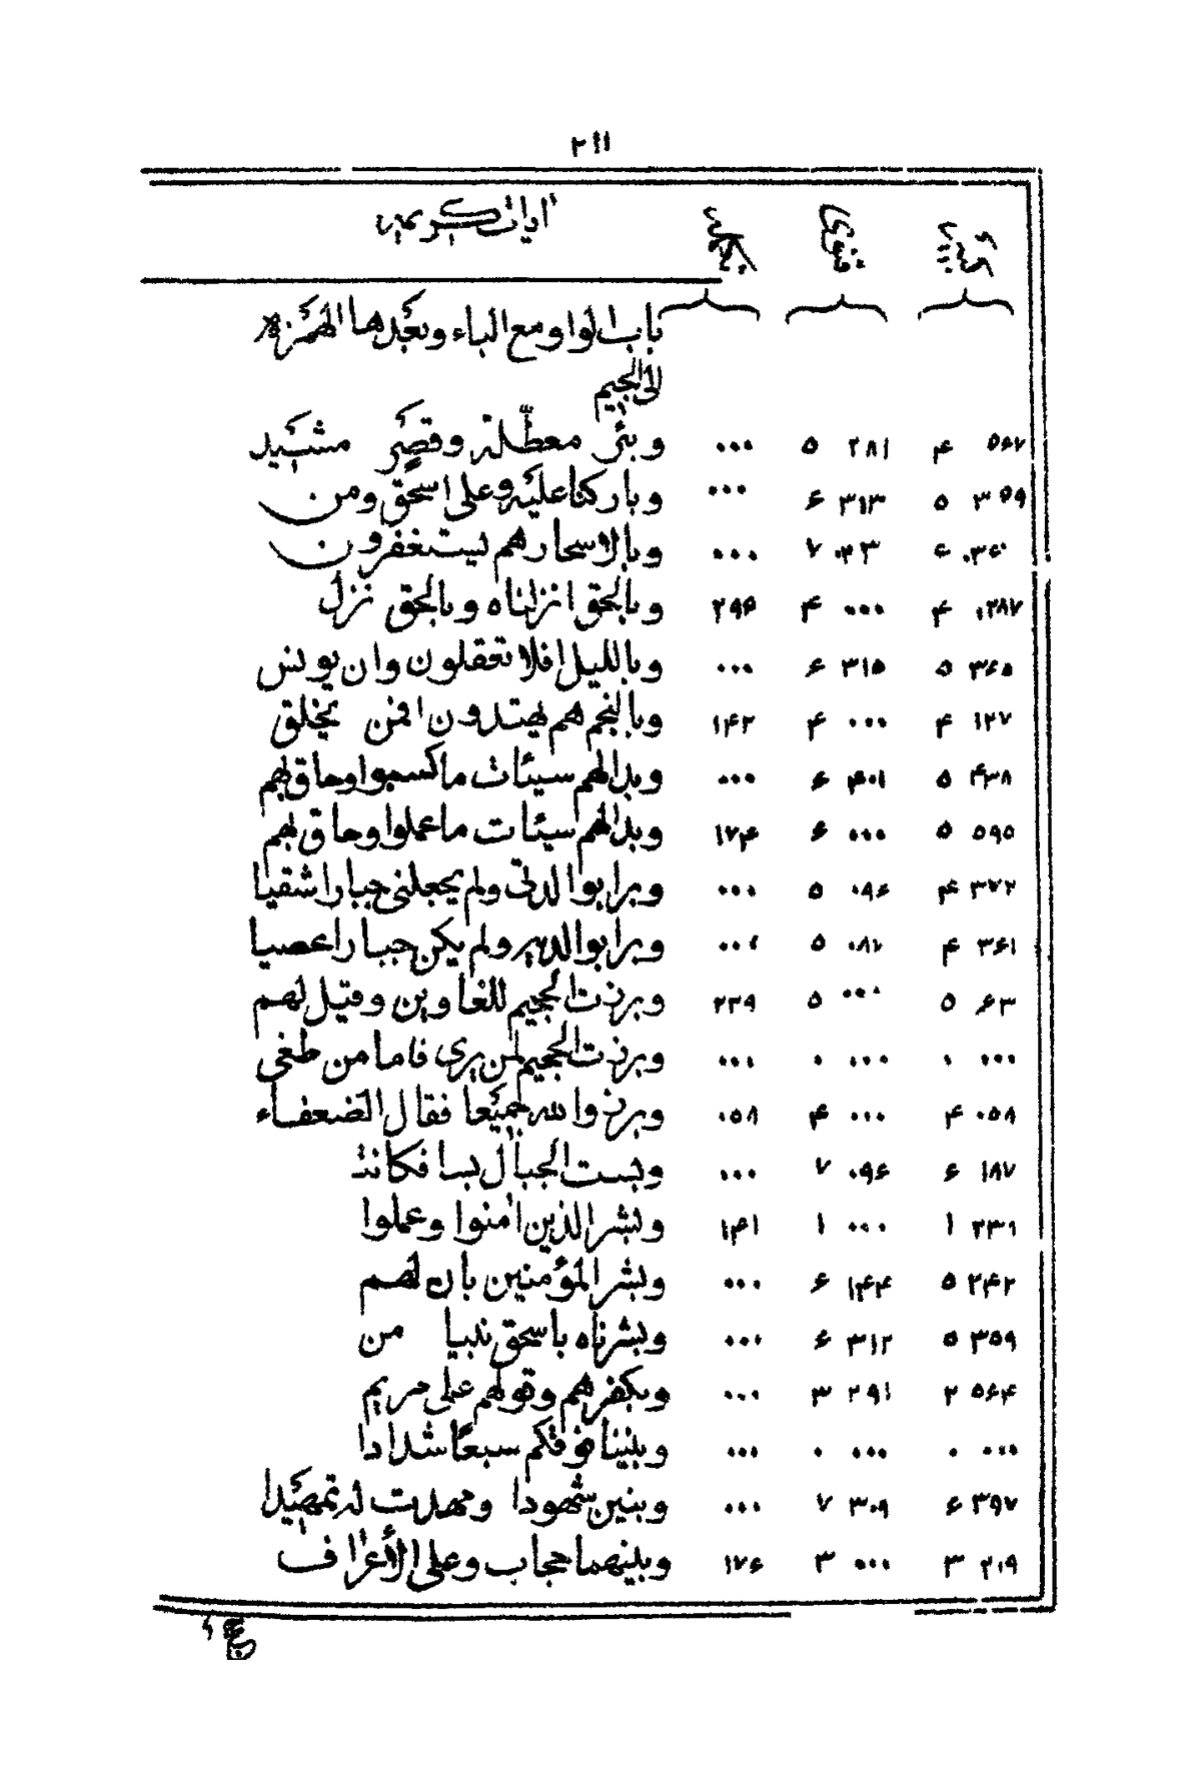 ٢١١
آيات كريمه
باب الواو مع الباء وبعدها الهمزة
الى الجيم
٥٦٧ ۴ ٢٨١ ٥ ٠٠٠ وبئر معطلة وقصر مشيد
٣٥٩ ٥ ٣١٣ ۶ ٠٠٠ وباركنا عليه وعلى اسحق ومن
٠٣۶٠ ۶ ٠٢٣ ٧ ٠٠٠ وبالاسحار هم يستغفرون
٠٢٨٧ ۴ ٠٠٠ ۴ ٢٩٥ وبالحق انزلناه وبالحق نزل
٣۶٥ ٥ ٣١٥ ۶ ٠٠٠ وبالليل افلا تعقلون وان يونس
١٢٧ ۴ ٠٠٠ ۴ ١۴٢ وبالنجم هم يهتدون افمن يخلق
۴٣٨ ٥ ۴٠١ ۶ ٠٠٠ وبدا لهم سيئات ما كسبوا وحاق بهم
٥٩٥ ٥ ٠٠٠ ۶ ١٧۴ وبدا لهم سيئات ما عملوا وحاق بهم
٣٧٢ ۴ ٠٩۶ ٥ ٠٠٠ وبرا بوالدتى ولم يجعلنى جبارا شقيا
٣۶١ ۴ ٠٨٢ ٥ ٠٠٠ وبرا بوالديه ولم يكن جبارا عصيا
٠۶٣ ٥ ٠٠٠ ٥ ٢٣٩ وبرزت الجحيم للغاوين وقيل لهم
٠٠٠ ٠ ٠٠٠ ٠ ٠٠٠ وبرزت الجحيم لمن يرى فاما من طغى
٠٥٨ ۴ ٠٠٠ ۴ ٠٥٨ وبرزوا لله جميعا فقال الضعفاء
١٨٧ ۶ ٠٩۶ ٧ ٠٠٠ وبست الجبال بسا فكانت
٢٣١ ١ ٠٠٠ ١ ١۴١ وبشر الذين امنوا وعملوا
٢۴٢ ٥ ١۴۴ ۶ ٠٠٠ وبشر المؤمنين بان لهم
٣٥٩ ٥ ٣١٢ ۶ ٠٠٠ وبشرناه باسحق نبيا من
٥۶۴ ٢ ٢٩١ ٣ ٠٠٠ وبكفرهم وقولهم على مريم
٠٠٠ ٠ ٠٠٠ ٠ ٠٠٠ وبنينا فوقكم سبعا شدادا
٣٩٧ ۶ ٣٠٩ ٧ ٠٠٠ وبنين شهودا ومهدت له تمهيدا
٢٠٩ ٣ ٠٠٠ ٣ ١٧۶ وبينهما حجاب وعلى الأعراف